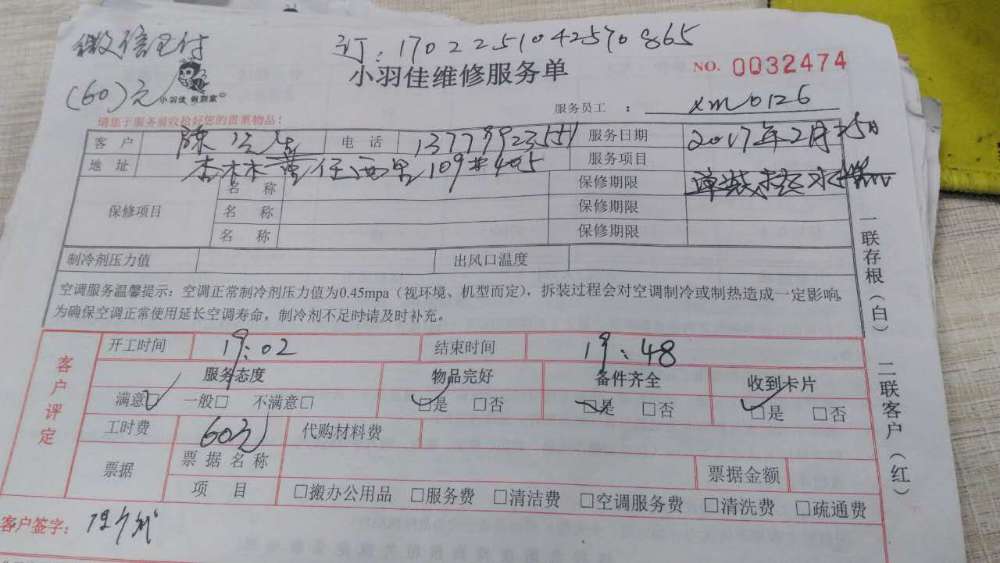 微信已付
订:1702251042570865
(60)元
小羽佳 钢到家
小羽佳维修服务单
NO. 0032474
服务员工 : xm0126
请您于服务前收拾好您的贵重物品:
客 户 陈先生 电 话 服务日期 2017年2月25日
地 址 杏林 西里109#405 服务项目
保修项目 名 称 保修期限
名 称 保修期限
名 称 保修期限
制冷剂压力值 出风口温度
空调服务温馨提示:空调正常制冷剂压力值为0.45mpa(视环境、机型而定),拆装过程会对空调制冷或制热造成一定影响,
为确保空调正常使用延长空调寿命,制冷剂不足时请及时补充。
客户评定
开工时间 19:02 结束时间 19:48
服务态度 物品完好 备件齐全 收到卡片
满意□ 一般□ 不满意□ □是 □否 □是 □否 □是 □否
工时费 60元 代购材料费
票据 票据名称 票据金额
项 目 □搬办公用品 □服务费 □清洁费 □空调服务费 □清洗费 □疏通费
客户签字:
一联存根(白) 二联客户(红)